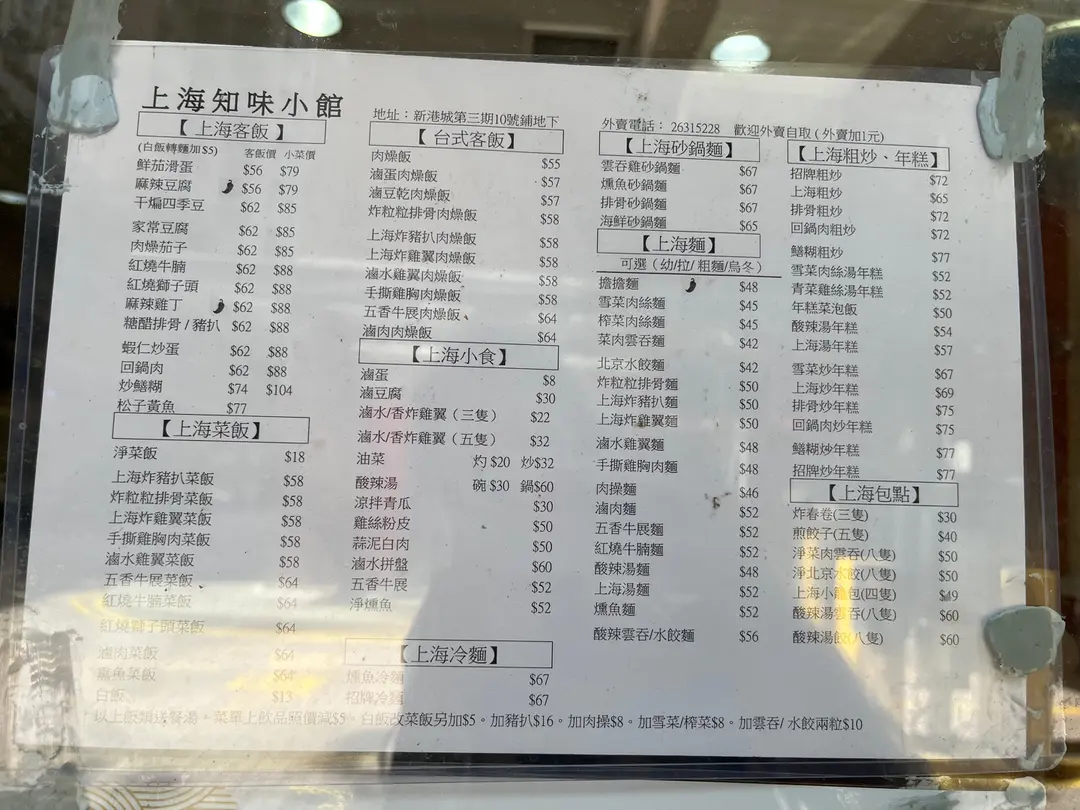 上海知味小館
地址：新港城第三期10號鋪地下
外賣電話： 26315228 歡迎外賣自取 ( 外賣加1元)
【 上海客飯 】
(白飯轉麵加$5) 客飯價 小菜價
鮮茄滑蛋 $56 $79
麻辣豆腐 $56 $79
干煸四季豆 $62 $85
家常豆腐 $62 $85
肉燥茄子 $62 $85
紅燒牛腩 $62 $88
紅燒獅子頭 $62 $88
麻辣雞丁 $62 $88
糖醋排骨 / 豬扒 $62 $88
蝦仁炒蛋 $62 $88
回鍋肉 $62 $88
炒鱔糊 $74 $104
松子黃魚 $77
【上海菜飯】
淨菜飯 $18
上海炸豬扒菜飯 $58
炸粒粒排骨菜飯 $58
上海炸雞翼菜飯 $58
手撕雞胸肉菜飯 $58
滷水雞翼菜飯 $58
五香牛展菜飯 $64
紅燒牛腩菜飯 $64
紅燒獅子頭菜飯 $64
滷肉菜飯 $64
燻魚菜飯 $64
白飯 $13
【 台式客飯】
肉燥飯 $55
滷蛋肉燥飯 $57
滷豆乾肉燥飯 $57
炸粒粒排骨肉燥飯 $58
上海炸豬扒肉燥飯 $58
上海炸雞翼肉燥飯 $58
滷水雞翼肉燥飯 $58
手撕雞胸肉燥飯 $58
五香牛展肉燥飯 $64
滷肉肉燥飯 $64
【上海小食】
滷蛋 $8
滷豆腐 $30
滷水/香炸雞翼（三隻） $22
滷水/香炸雞翼（五隻） $32
油菜 灼 $20 炒$32
酸辣湯 碗 $30 鍋$60
涼拌青瓜 $30
雞絲粉皮 $50
蒜泥白肉 $50
滷水拼盤 $60
五香牛展 $52
淨燻魚 $52
【上海冷麵】
燻魚冷麵 $67
招牌冷麵 $67
【上海砂鍋麵】
雲吞雞砂鍋麵 $67
燻魚砂鍋麵 $67
排骨砂鍋麵 $67
海鮮砂鍋麵 $65
【上海麵】
可選（幼/拉/ 粗麵/烏冬）
擔擔麵 $48
雪菜肉絲麵 $45
榨菜肉絲麵 $45
菜肉雲吞麵 $42
北京水餃麵 $42
炸粒粒排骨麵 $50
上海炸豬扒麵 $50
上海炸雞翼麵 $50
滷水雞翼麵 $48
手撕雞胸肉麵 $48
肉操麵 $46
滷肉麵 $52
五香牛展麵 $52
紅燒牛腩麵 $52
酸辣湯麵 $48
上海湯麵 $52
燻魚麵 $52
酸辣雲吞/水餃麵 $56
【上海粗炒、年糕】
招牌粗炒 $72
上海粗炒 $65
排骨粗炒 $72
回鍋肉粗炒 $72
鱔糊粗炒 $77
雪菜肉絲湯年糕 $52
青菜雞絲湯年糕 $52
年糕菜泡飯 $50
酸辣湯年糕 $54
上海湯年糕 $57
雪菜炒年糕 $67
上海炒年糕 $69
排骨炒年糕 $75
回鍋肉炒年糕 $75
鱔糊炒年糕 $77
招牌炒年糕 $77
【上海包點】
炸春卷(三隻) $30
煎餃子(五隻) $40
淨菜肉雲吞(八隻) $50
淨北京水餃(八隻) $50
上海小籠包(四隻) $49
酸辣湯雲吞(八隻) $60
酸辣湯餃(八隻) $60
以上飯類送餐湯。菜單上飲品照價減$5。白飯改菜飯另加$5。加豬扒$16。加肉操$8。加雪菜/榨菜$8。加雲吞/ 水餃兩粒$10